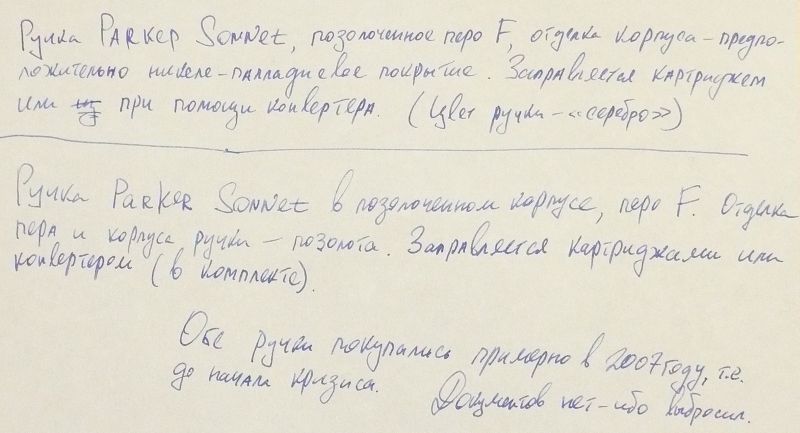 Ручка PARKEP SONNET, позолоченное перо F, отделка корпуса - предпо-
ложительно никеле-палладиевое покрытие. Заправляется картриджем
или при помощи конвертера. (Цвет ручки - «серебро»)
Ручка PARKER SONNET в позолоченном корпусе, перо F. Отделка
пера и корпуса ручки - позолота. Заправляется картриджами или
конвертером (в комплекте).
Обе ручки покупались примерно в 2007 году, т.е.
до начала кризиса. Документов нет - ибо выбросил.